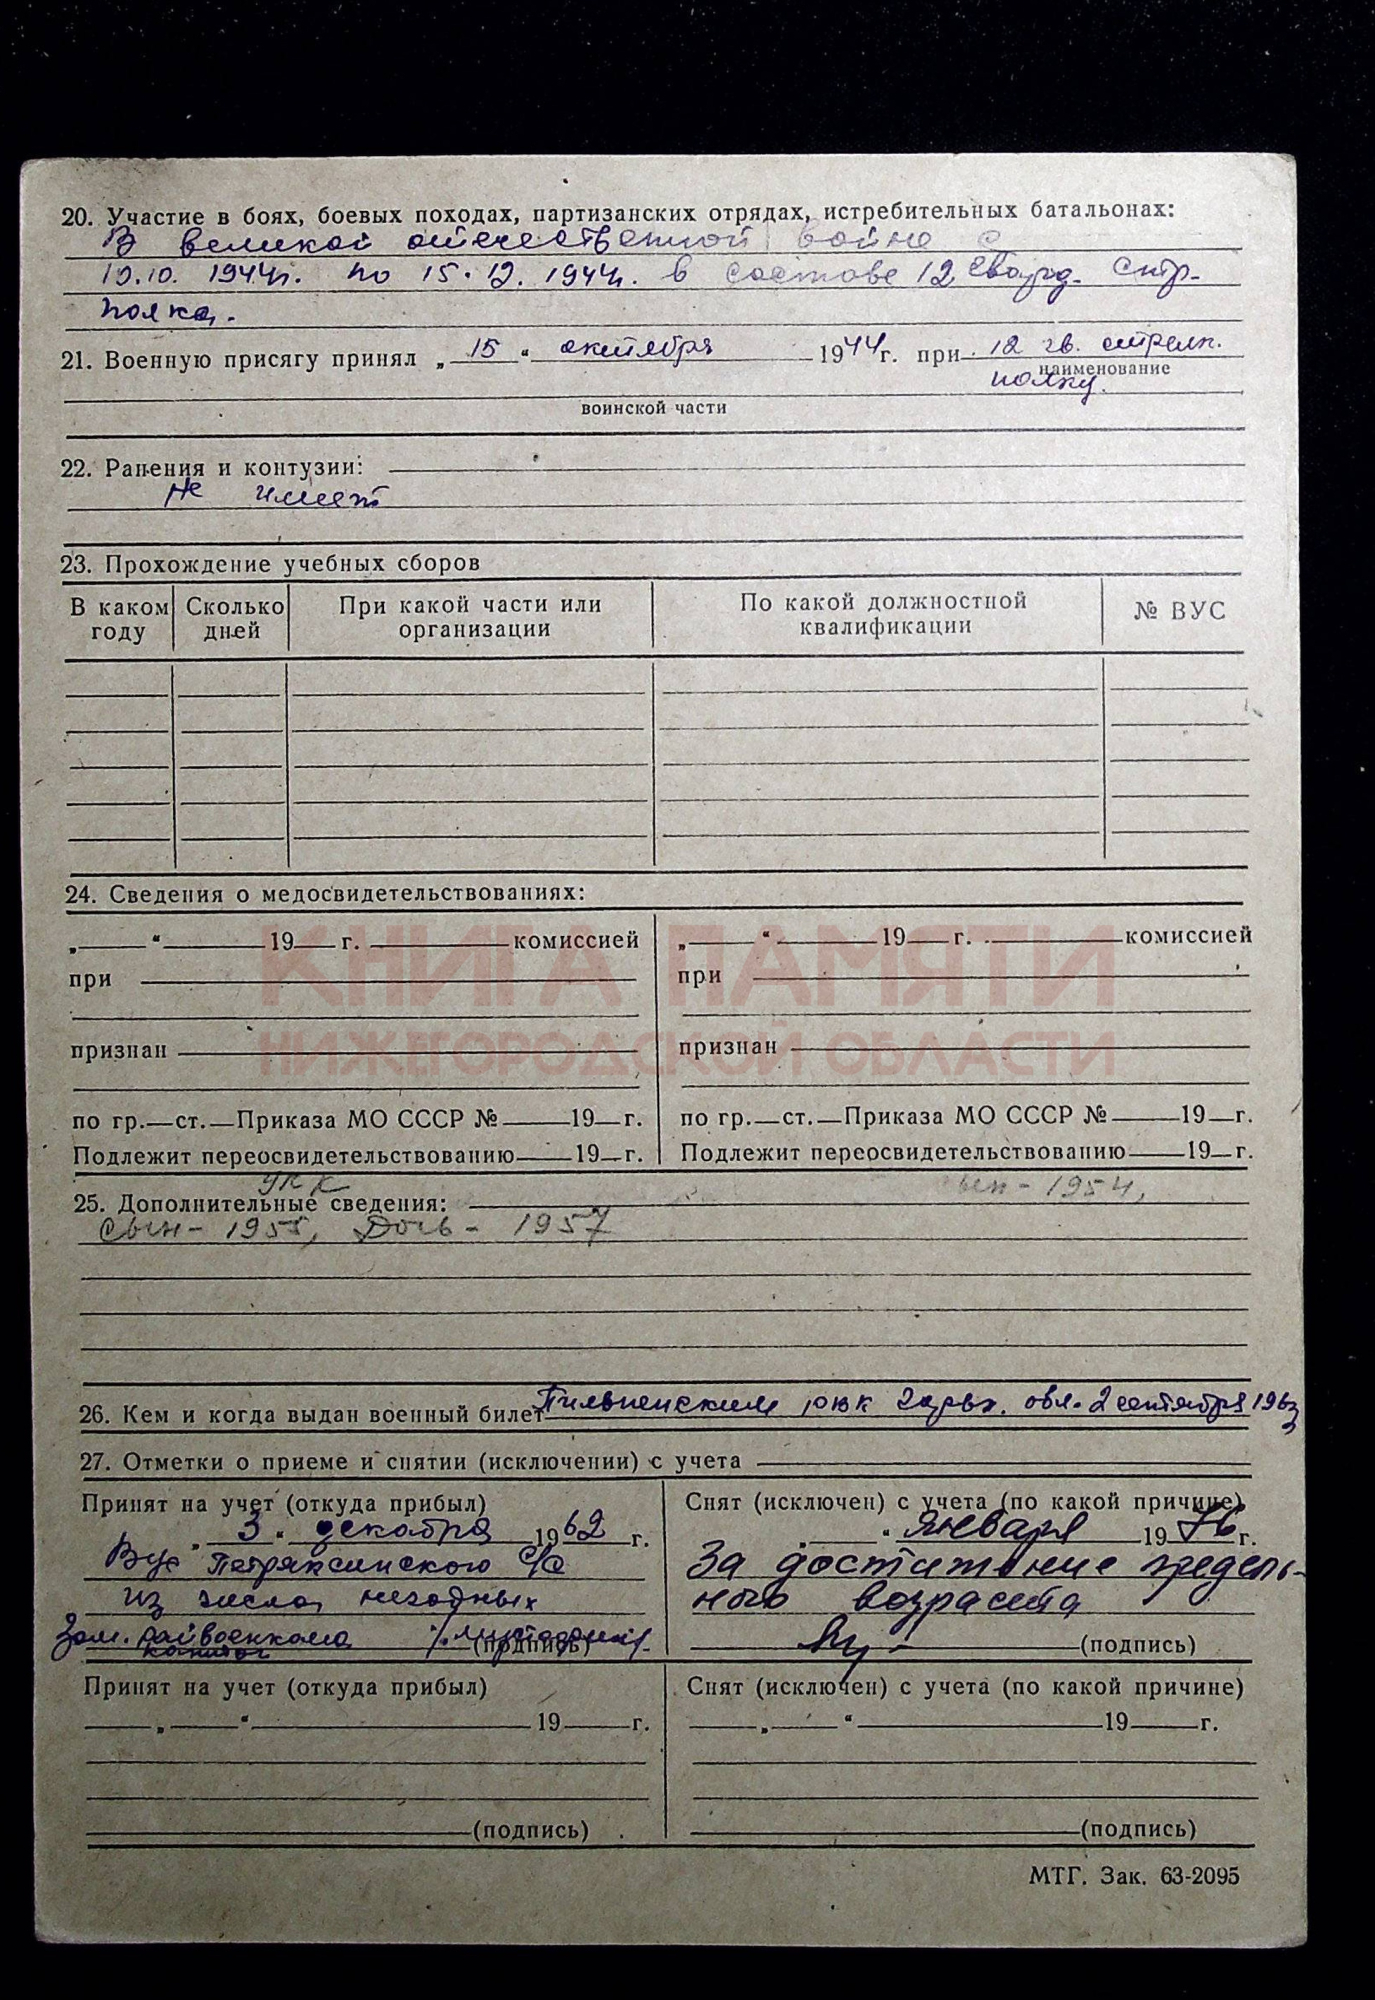 20. Участие в боях, боевых походах, партизанских отрядах, истребительных батальонах:
В великой отечественной войне с
10.10. 1944г. по 15.12.1944г. в составе 12 гвард. стр.
полка.
21. Военную присягу принял „ 15 “ октября 1944г. при 12 гв. стрелк.
наименование
полку.
воинской части
22. Ранения и контузии:
Не имеет
23. Прохождение учебных сборов
В каком году Сколько дней При какой части или организации По какой должностной квалификации № ВУС
24. Сведения о медосвидетельствованиях:
„ “ 19 г. комиссией „ “ 19 г. комиссией
при при
КНИГА ПАМЯТИ
НИЖЕГОРОДСКОЙ ОБЛАСТИ
признан признан
по гр. ст. Приказа МО СССР № 19 г. по гр. ст. Приказа МО СССР № 19 г.
Подлежит переосвидетельствованию 19 г. Подлежит переосвидетельствованию 19 г.
25. Дополнительные сведения: сын - 1954,
сын - 1955, Дочь - 1957
26. Кем и когда выдан военный билет Пильненским рвк Горьк. обл. 2 сентября 1963
27. Отметки о приеме и снятии (исключении) с учета
Принят на учет (откуда прибыл) Снят (исключен) с учета (по какой причине)
„ 3 “ декабря 1962 г. „ “ января 1976 г.
Вус Петряксинского с/с За достижение предель-
из числа негодных ного возраста
Зам. райвоенкома (подпись) (подпись)
капитан
Принят на учет (откуда прибыл) Снят (исключен) с учета (по какой причине)
„ “ 19 г. „ “ 19 г.
(подпись) (подпись)
МТГ. Зак. 63-2095